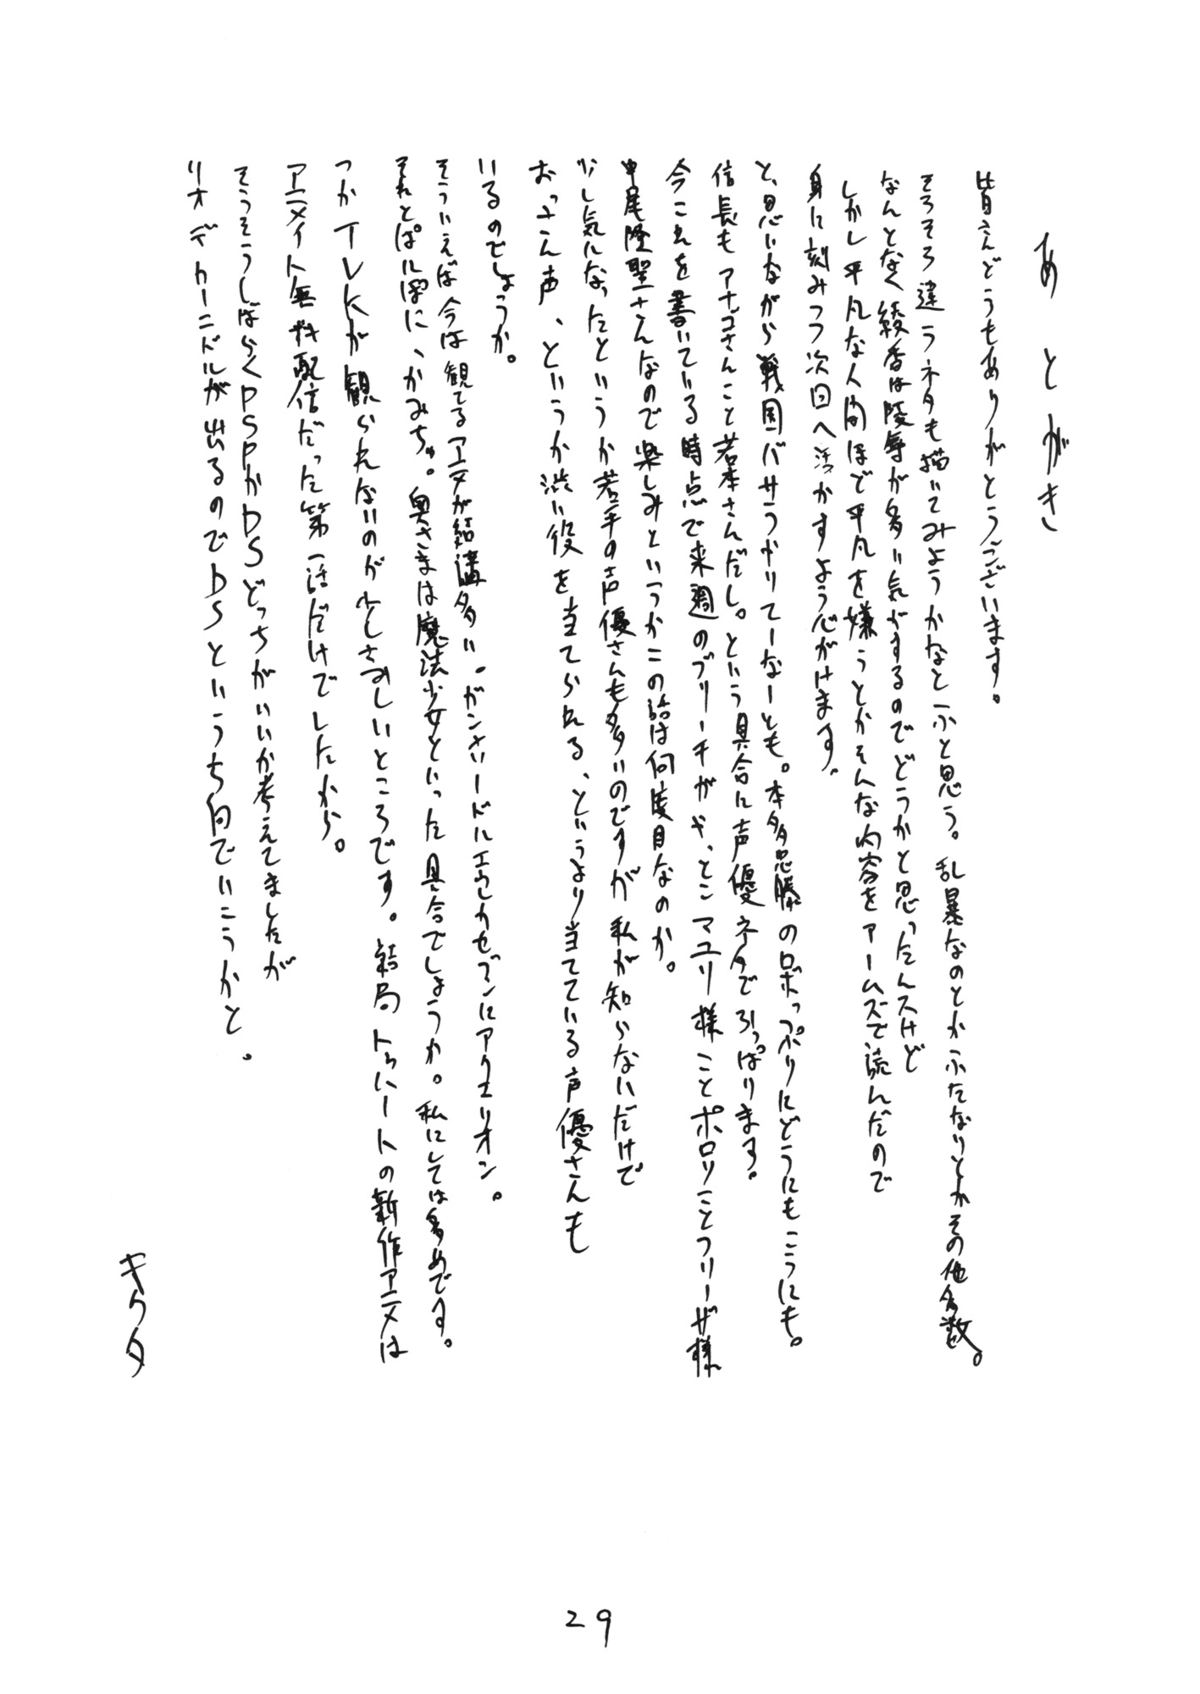 あとがき
皆さんどうもありがとうございます。
そろそろ違うネタも描いてみようかなとふと思う。乱暴なのとかふたなりとかその他多数。
なんとなく綾香は陵辱が多い気がするのでどうかと思ったんスけど
しかし平凡な人間ほど平凡を嫌うとかそんな内容をアームズで読んだので
身に刻みつつ次回へ活かすよう心がけます。
と、思いながら戦国バサラかりてーなーとも。本多忠勝のロボっぷりにどうにもこうにも。
信長もアナゴさんこと若本さんだし。という具合に声優ネタで引っぱります。
今これを書いている時点で来週のブリーチがや、とこマユリ様ことポロリことフリーザ様
中尾隆聖さんなので楽しみというかこの話は何度目なのか。
少し気になったというか若手の声優さんも多いのですが私が知らないだけで
おっさん声、というか渋い役を当てられる、というより当てている声優さんも
いるのでしょうか。
そういえば今は観てるアニメが結構多い。ガンソードにエウレカセブンにアクエリオン。
それとぱにぽに、かみちゅ。奥さまは魔法少女といった具合でしょうか。私にしては多めです。
つかTLKが観られないのが少しさみしいところです。結局トゥハートの新作アニメは
アニメイト無料配信だった第一話だけでしたから。
そうそうしばらくPSPかDSどっちがいいか考えてましたが
リオデカーニバルが出るのでDSといううち向でいこうかと。
キクタ
29